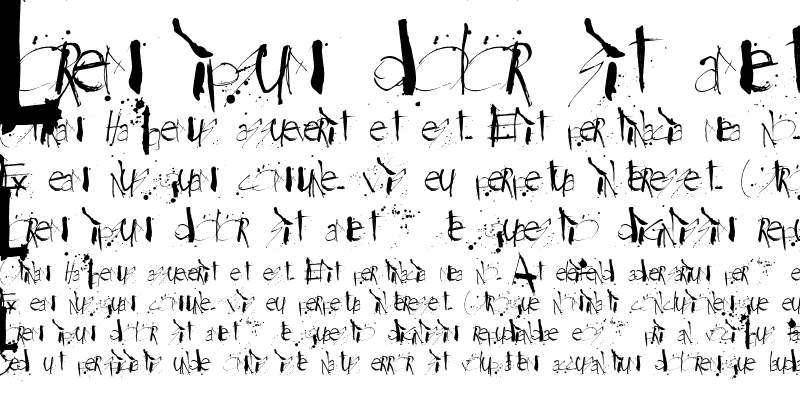 Lorem ipsum dolor sit amet
Omnan Habgenus assueverit et est. Elit pertinacia mea no.
Ex eam nusquam consule. Vis eu perpetua interesset. (Tor
Lorem ipsum dolor sit amet te quaestio dignissim repu
Omnan Habgenus assueverit et est. Elit pertinacia mea no. At eleifend adversarium per e
Ex eam nusquam consule. Vis eu perpetua interesset. (Torque nominati concludaturque eu
Lorem ipsum dolor sit amet te quaestio dignissim repudiandae eos pri an vocibus
Sed ut perspiciatis unde omnis iste natus error sit voluptatem accusantium doloremque lauda